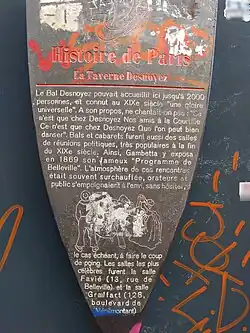 Histoire de Paris
La Taverne Desnoyez
Le Bal Desnoyez pouvait accueillir ici jusqu'à 2000
personnes, et connut au XIXe siècle "une gloire
universelle". A son propos, ne chantait-on pas : "Ca
n'est que chez Desnoyez Nos amis à la Courtille
Ce n'est que chez Desnoyez Que l'on peut bien
danser". Bals et cabarets furent aussi des salles
de réunions politiques, très populaires à la fin
du XIXe siècle. Ainsi, Gambetta y exposa
en 1869 son fameux "Programme de
Belleville". L'atmosphère de ces rencontres
était souvent surchauffée, orateurs et
public s'empoignaient à l'envi, sans hésiter,
le cas échéant, à faire le coup
de poing. Les salles les plus
célèbres furent la salle
Favié (13, rue de
Belleville) et la salle
Graffart (128,
boulevard de
Ménilmontant)